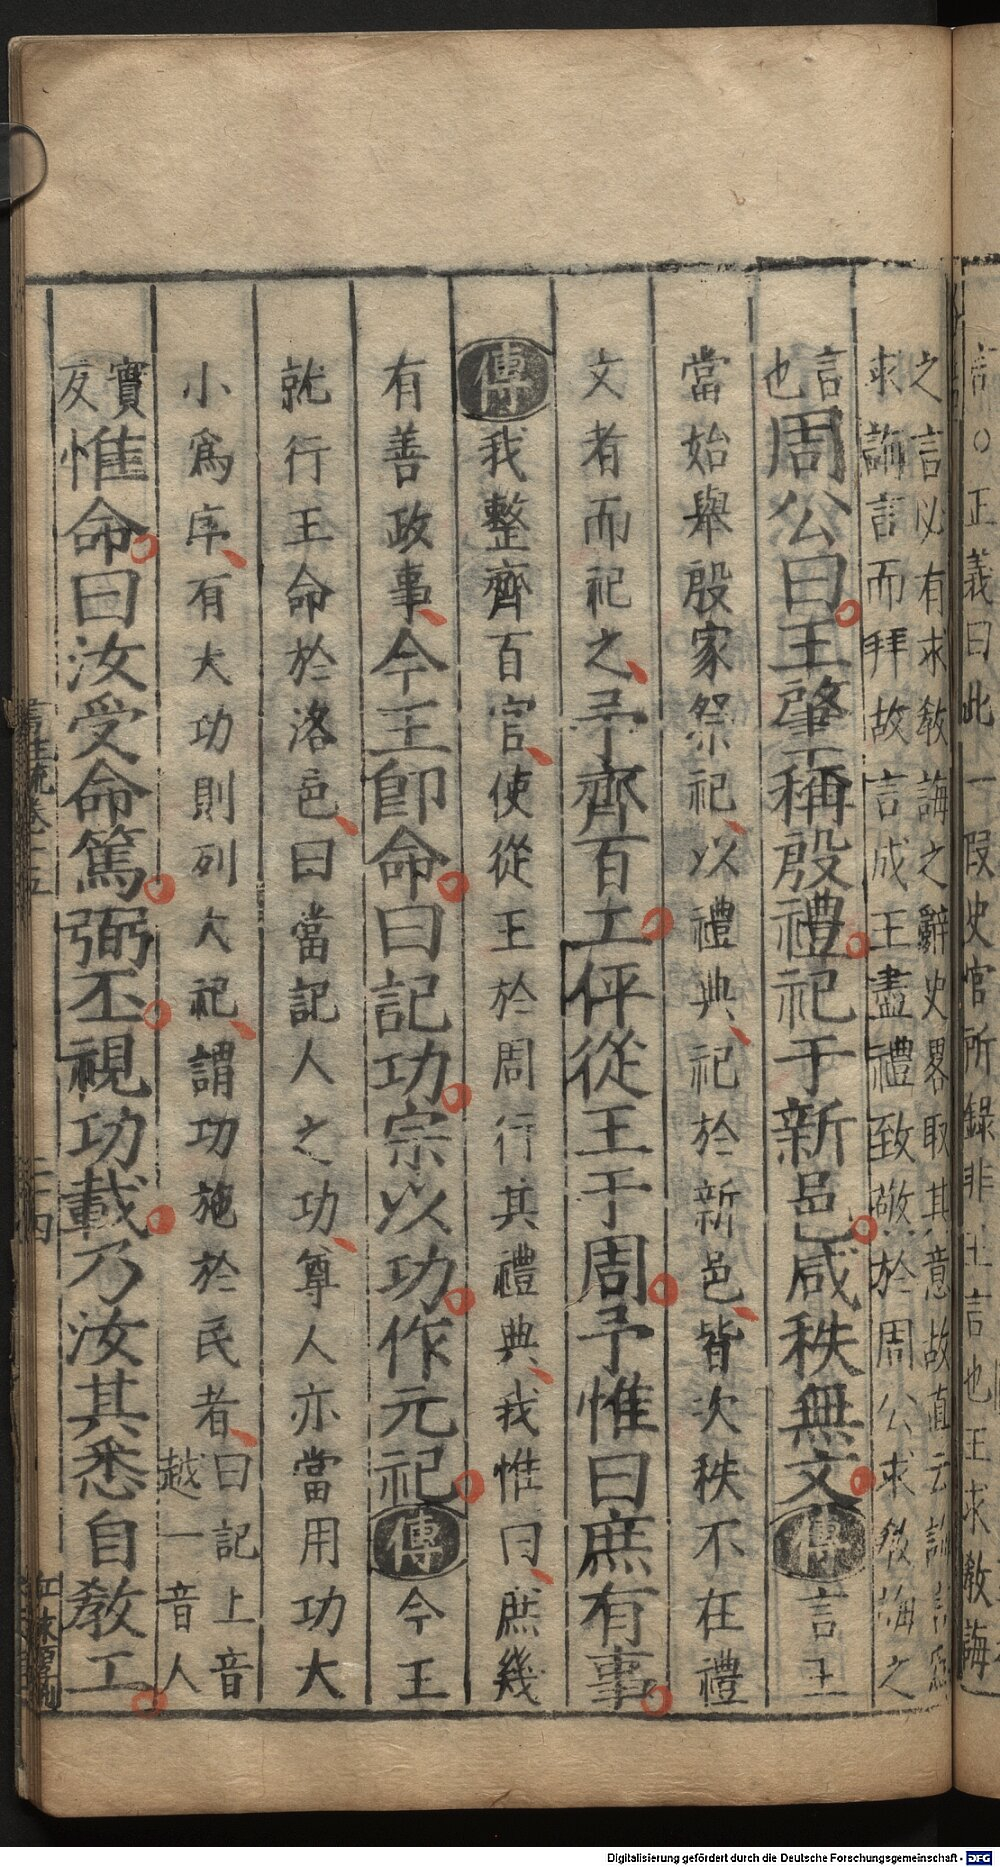 言。正義曰此一假史官所錄非王言也王求教誨
之言必有求教誨之辭史畧取其意故直云誨言爲
求誨言而拜故言成王盡禮致敬於周公求教誨之
言也周公曰王肇稱殷禮祀于新邑咸秩無文傳言王
當始舉殷家祭祀以禮典祀於新邑皆次秩不在禮
文者而祀之予齊百工伻從王于周予惟曰庶有事
傳我整齊百官使從王於周行其禮典我惟曰庶幾
有善政事今王卽命曰記功宗以功作元祀傳今王
就行王命於洛邑曰當記人之功尊人亦當用功大
小爲序有大功則列大祀謂功施於民者曰記上音越一音人
實反惟命曰汝受命篤弼丕視功載乃汝其悉自教工
書注疏卷十五
二十四
Digitalisierung gefördert durch die Deutsche Forschungsgemeinschaft - DFG